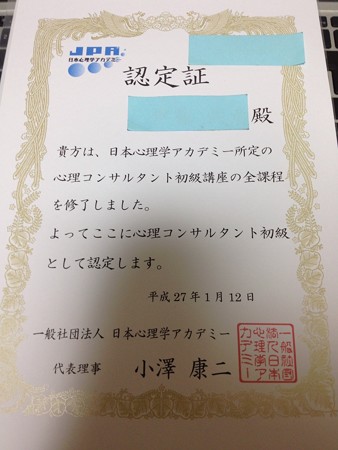 JPA
日本心理学アカデミー
認定証
殿
貴方は、日本心理学アカデミー所定の
心理コンサルタント初級講座の全課程
を修了しました。
よってここに心理コンサルタント初級
として認定します。
平成27年1月12日
一般社団法人 日本心理学アカデミー
代表理事 小澤 康二
一般社団
法人日本
心理学ア
カデミー